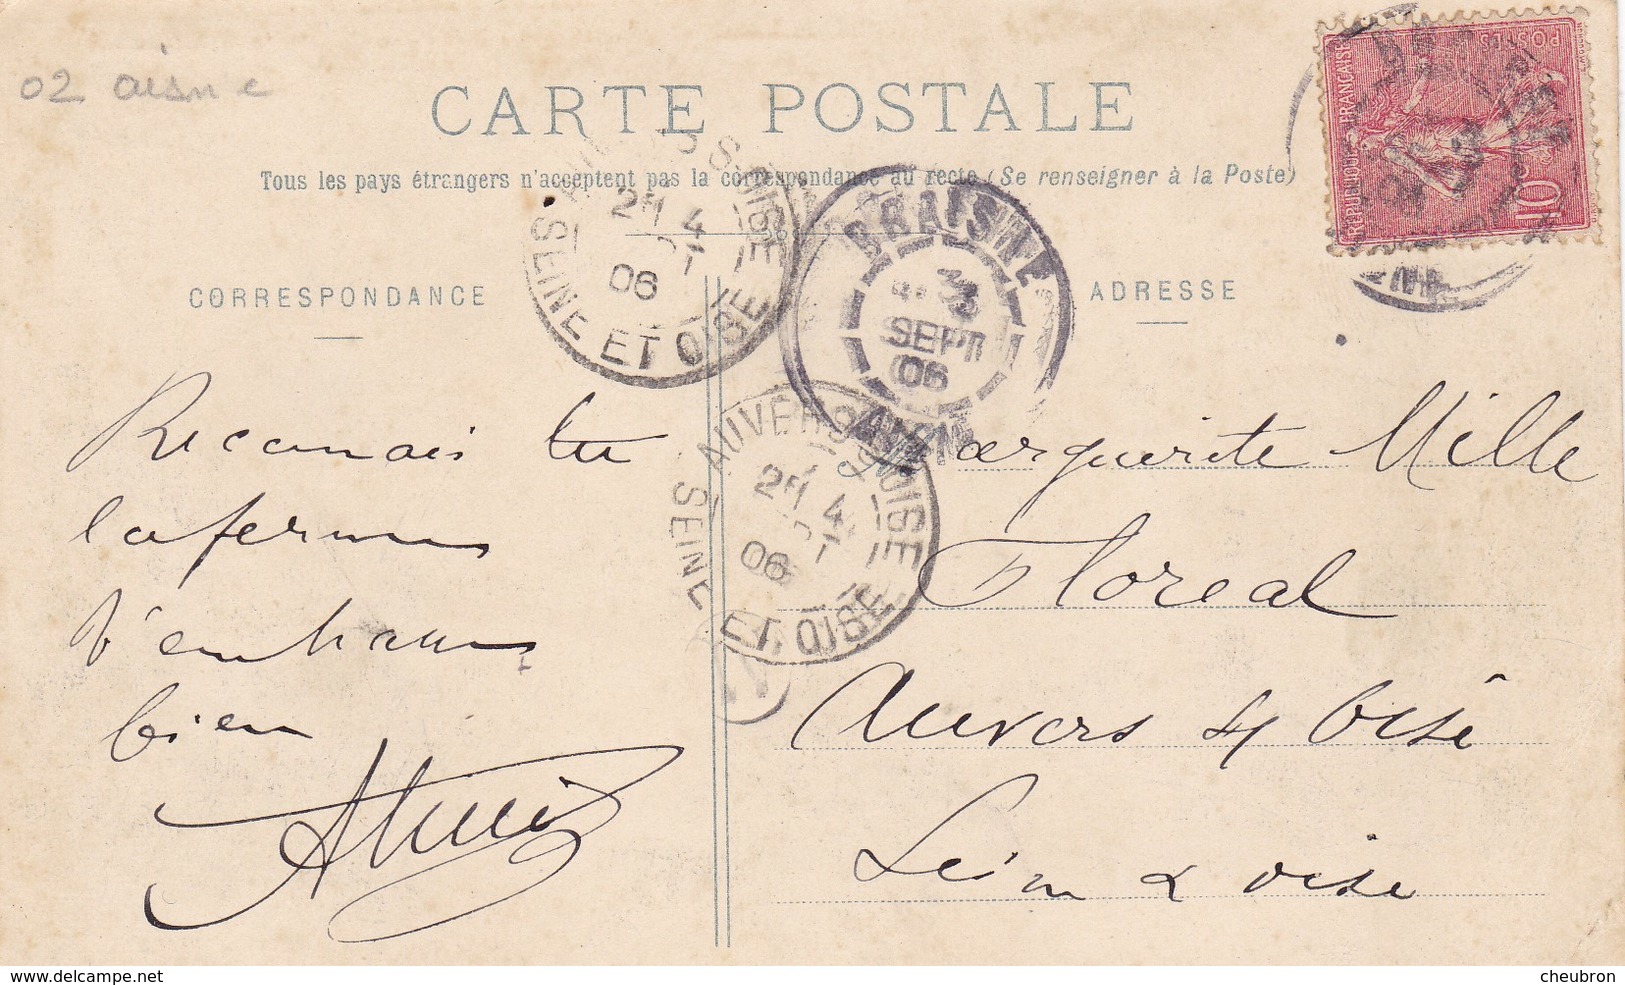 02 aisne
CARTE POSTALE
Tous les pays étrangers n'acceptent pas la correspondance au recto (Se renseigner à la Poste)
CORRESPONDANCE
ADRESSE
REPUBLIQUE FRANÇAISE
POSTES
10c
AUVERS S. OISE
2E 4
06
SEINE ET OISE
BRAISNE
3
SEPT
06
AISNE
AUVERS S. OISE
2E 4
06
SEINE ET OISE
Reconnais tu
la ferme
t'embrasse
bien
Marguerite Mille
Floreal
Auvers s/ Oise
Seine & Oise
www.delcampe.net
cheubron